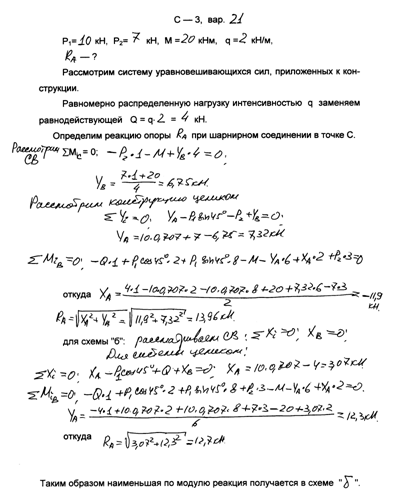 С — 3, вар. 21
P₁=10 кН, P₂= 7 кН, M =20 кНм, q =2 кН/м,
R_A — ?
Рассмотрим систему уравновешивающихся сил, приложенных к кон-
струкции.
Равномерно распределенную нагрузку интенсивностью q заменяем
равнодействующей Q = q· 2 = 4 кН.
Определим реакцию опоры R_A при шарнирном соединении в точке С.
Рассмотрим СВ ΣM_iC = 0; -P₂·1-M+Y_B·4=0;
Y_B = (7·1+20)/4 = 6,75кН.
Рассмотрим конструкцию целиком
ΣY_i=0; Y_A-P₁sin45°-P₂+Y_B=0;
Y_A=10·0,707+7-6,75=7,32кН
ΣM_iB=0; -Q·1+P₁cos45°·2+P₁sin45°·8-M-Y_A·6+X_A·2+P₂·3=0
откуда X_A = (4·1-10·0,707·2-10·0,707·8+20+7,32·6-7·3)/2 = -11,9 кН
R_A=√(X_A²+Y_A²)=√(11,9²+7,32²)=13,96кН.
для схемы "б": рассматриваем СВ: ΣX_i=0; X_B=0;
Для системы целиком:
ΣX_i=0; X_A-P₁cos45°+Q+X_B=0; X_A=10·0,707-4=3,07кН
ΣM_iB=0; -Q·1+P₁cos45°·2+P₁sin45°·8+P₂·3-M-Y_A·6+X_A·2=0.
Y_A=(-4·1+10·0,707·2+10·0,707·8+7·3-20+3,07·2)/6=12,3кН.
откуда R_A=√(3,07²+12,3²)=12,7кН.
Таким образом наименьшая по модулю реакция получается в схеме "б".